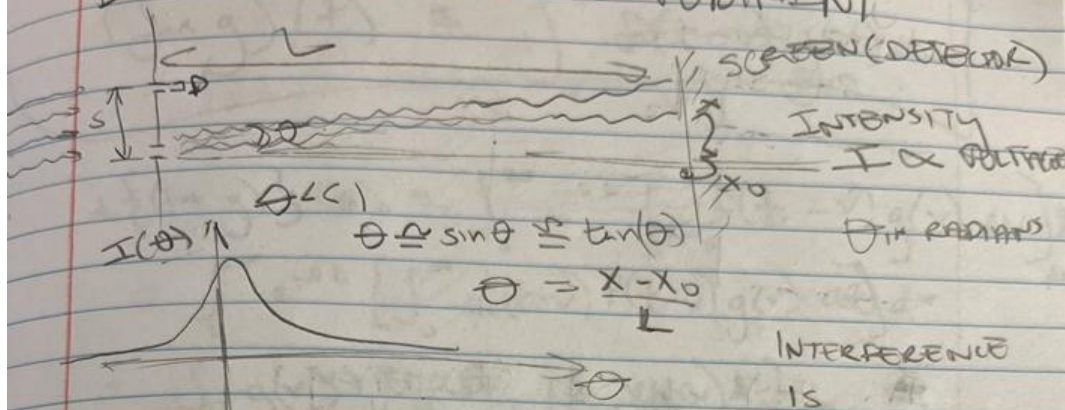 L
SCREEN (DETECTOR)
D
S
θ
X
INTENSITY
I ∝ VOLTAGE
X0
θ<<1
I(θ)
θ ≅ sinθ ≅ tan(θ)
θ IN RADIANS
θ = X-X0
L
INTERFERENCE
θ
IS